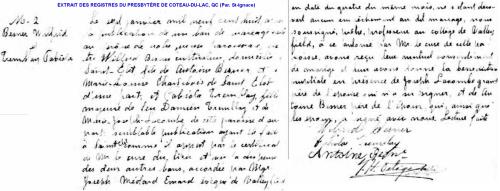 EXTRAIT DES REGISTRES DU PRESBYTÈRE DE COTEAU-DU-LAC, QC (Par. St-Ignace)
M-2
Besner Wilfrid
et
Tremblay Fabiola
Le sept janvier mil neuf cent huit
la publication de un ban de mariage
au prône de notre messe paroissiale
de Wilfrid Besner cultivateur, domicilié
Saint-Clet fils de Antoine Besner et
Marie-Louise de Saint Clet
d'une part, et Fabiola Tremblay fille
majeure de feu Damien Tremblay et de
Marie Lacombe de cette paroisse d'au
part; semblable publication ayant été faite
à Saint comme il appert par le certificat
de Mr le curé du lieu et vu la dispense
des deux autres bans, accordée par Mgr
Joseph Médard Emard évêque de Valleyfield
en date du quatre du même mois, ne s'étant décou
vert aucun empêchement au dit mariage, nous
soussigné, prêtre, professeur au collège de Valley
field, à ce autorisé par Mr le curé de cette pa
roisse, avons reçu leur mutuel consentement
de mariage et leur avons donné la bénédiction
nuptiale en présence de Joseph Lacombe grand
père de l'épouse qui n'a su signer, et de An
toine Besner père de l'époux qui, ainsi que
les époux, a signé avec nous. Lecture faite
Wilfrid Besner
Fabiola Tremblay
Antoine Besner